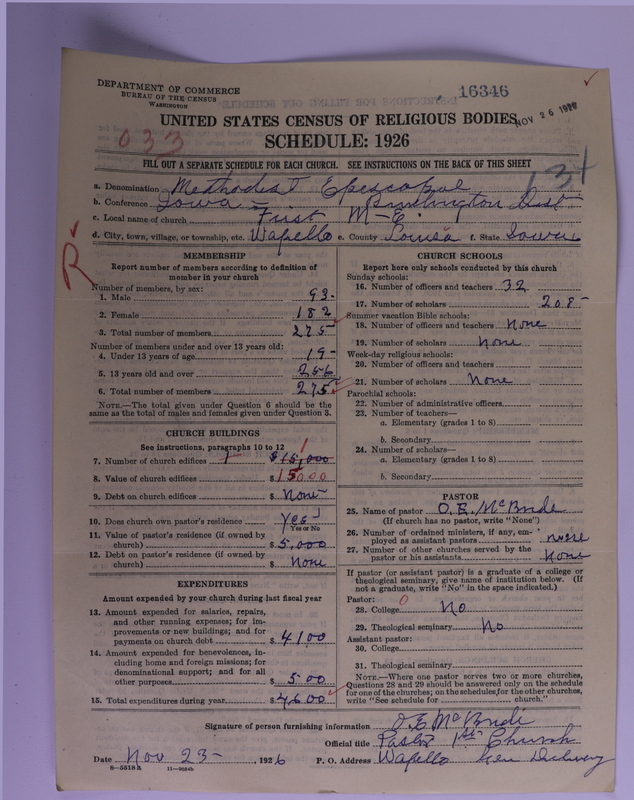 DEPARTMENT OF COMMERCE
BUREAU OF THE CENSUS
WASHINGTON
16346
NOV 26 1926
UNITED STATES CENSUS OF RELIGIOUS BODIES
SCHEDULE: 1926
033
131
FILL OUT A SEPARATE SCHEDULE FOR EACH CHURCH. SEE INSTRUCTIONS ON THE BACK OF THIS SHEET
a. Denomination Methodist Episcopal
b. Conference Iowa - Burlington Dist
c. Local name of church First M-E.
d. City, town, village, or township, etc. Wapello e. County Louisa f. State Iowa
R
MEMBERSHIP
Report number of members according to definition of member in your church
Number of members, by sex:
1. Male 93-
2. Female 182
3. Total number of members 275
Number of members under and over 13 years old:
4. Under 13 years of age 19-
5. 13 years old and over 256
6. Total number of members 275
NOTE.—The total given under Question 6 should be the
same as the total of males and females given under Question 3.
CHURCH BUILDINGS
See instructions, paragraphs 10 to 12
7. Number of church edifices 1 $15,000 1
8. Value of church edifices $ 15000
9. Debt on church edifices $ None
10. Does church own pastor's residence Yes
Yes or No
11. Value of pastor's residence (if owned by
church) $ 5,000
12. Debt on pastor's residence (if owned by
church) $ None
EXPENDITURES
Amount expended by your church during last fiscal year
13. Amount expended for salaries, repairs,
and other running expenses; for im-
provements or new buildings; and for
payments on church debt $ 4100
14. Amount expended for benevolences, in-
cluding home and foreign missions; for
denominational support; and for all
other purposes $ 500
15. Total expenditures during year $ 4600
CHURCH SCHOOLS
Report here only schools conducted by this church
Sunday schools:
16. Number of officers and teachers 32
17. Number of scholars 208-
Summer vacation Bible schools:
18. Number of officers and teachers None
19. Number of scholars None
Week-day religious schools:
20. Number of officers and teachers
21. Number of scholars None
Parochial schools:
22. Number of administrative officers
23. Number of teachers—
a. Elementary (grades 1 to 8)
b. Secondary
24. Number of scholars—
a. Elementary (grades 1 to 8)
b. Secondary
PASTOR
25. Name of pastor O. E. McBride
(If church has no pastor, write "None")
26. Number of ordained ministers, if any, em-
ployed as assistant pastors none
27. Number of other churches served by the
pastor or his assistants None
If pastor (or assistant pastor) is a graduate of a college or
theological seminary, give name of institution below. (If
not a graduate, write "No" in the space indicated.)
Pastor: 0
28. College No
29. Theological seminary No
Assistant pastor:
30. College
31. Theological seminary
NOTE.—Where one pastor serves two or more churches,
Questions 28 and 29 should be answered only on the schedule
for one of the churches; on the schedules for the other churches,
write "See schedule for church."
Signature of person furnishing information O. E. McBride
Official title Pastor 1st Church
Date Nov 23-, 1926 P. O. Address Wapello Gen Delivery
8—5318 a 11—9884b